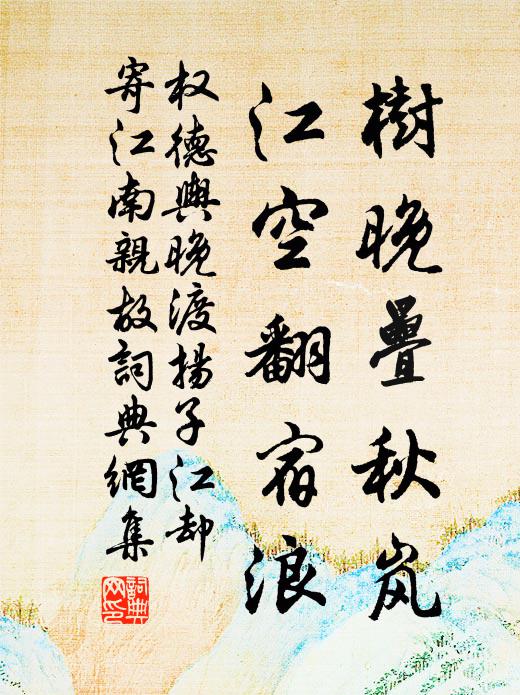 樹晚疊秋岚
江空翻宿浪
权德輿晚渡揚子江却
寄江南親故詞典網集
詞典
网印